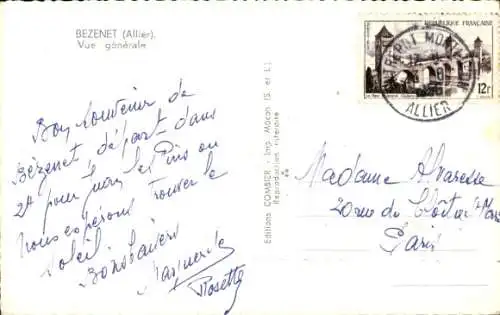 BEZENET (Allier).
Vue générale
Bon Souvenir de
Bézenet départ dans
2 pour Juan les Pins ou
nous espérons trouver le
Soleil.
Bons baisers
Marguerite
Rosette
Editions COMBIER - Imp. Mâcon (S. et L.)
Reproduction interdite
REPUBLIQUE FRANÇAISE
12f
ALLIER
Madame Alvaresse
20 rue du Cloître
Paris